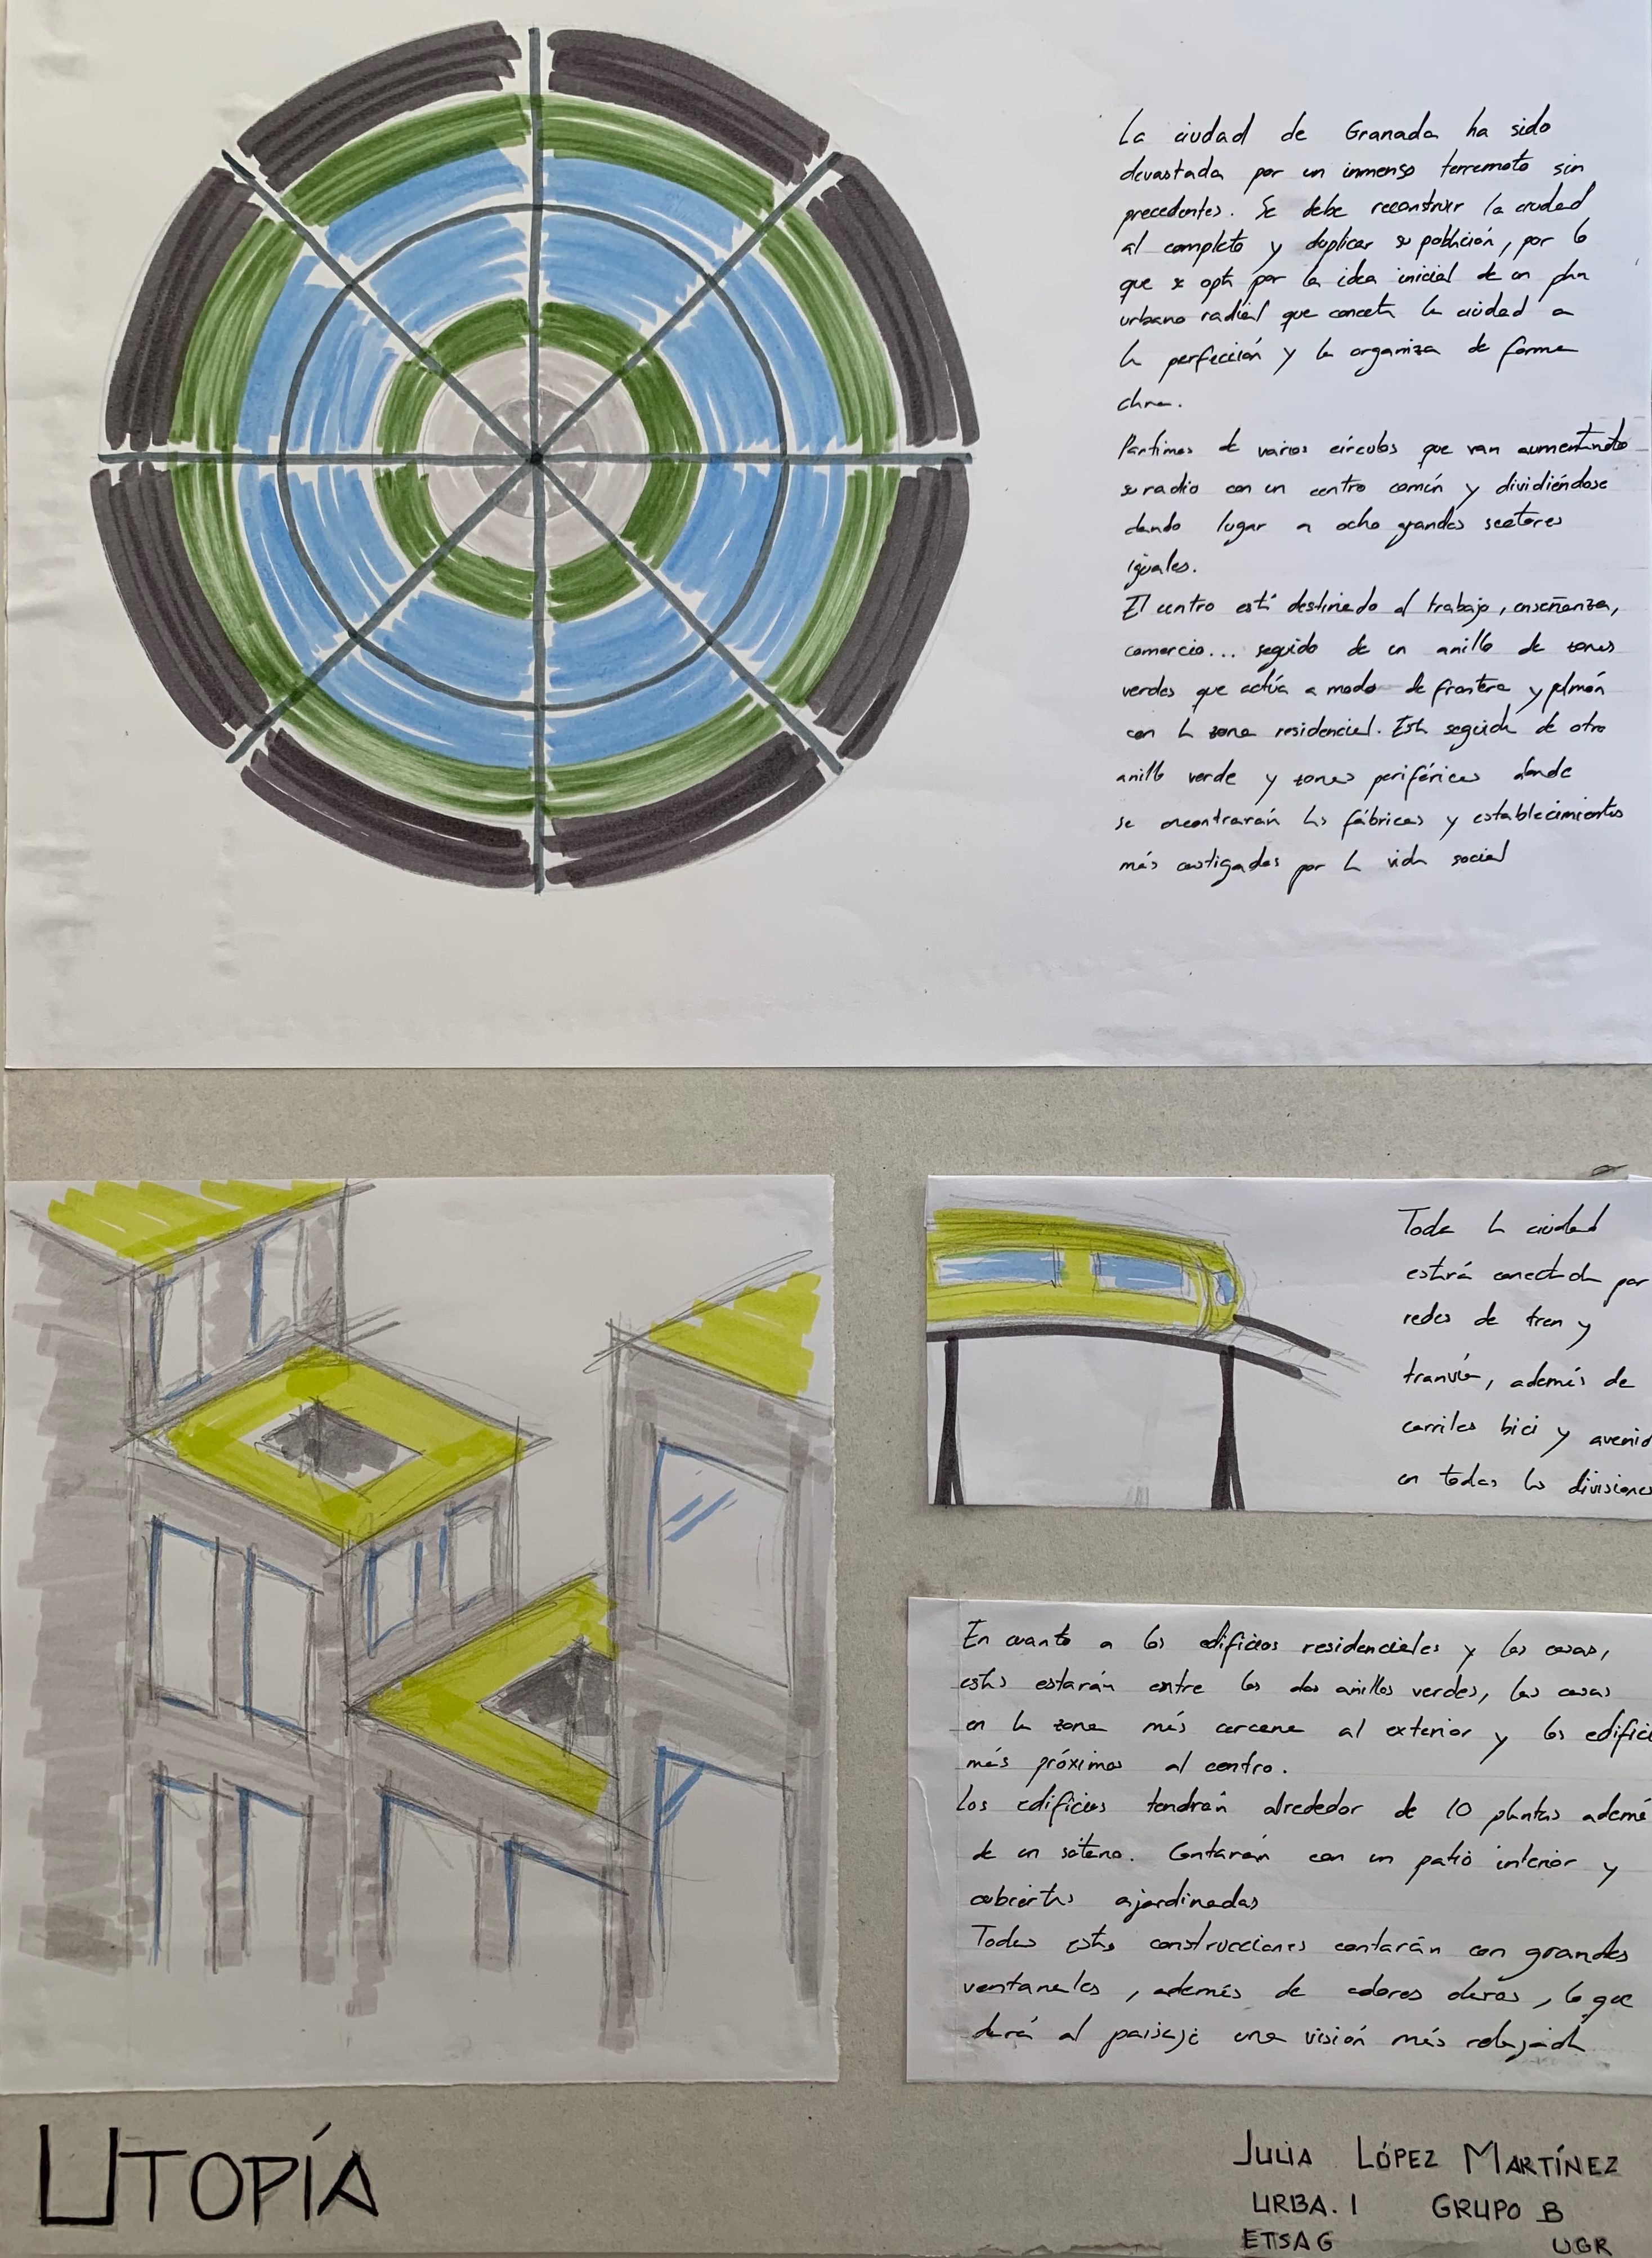 La ciudad de Granada ha sido
devastada por un inmenso terremoto sin
precedentes. Se debe reconstruir la ciudad
al completo y duplicar su población, por lo
que se opta por la idea inicial de un plan
urbano radial que conecta la ciudad a
la perfección y la organiza de forma
clara.
Partimos de varios círculos que van aumentando
su radio con un centro común y dividiéndose
dando lugar a ocho grandes sectores
iguales.
El centro está destinado al trabajo, enseñanza,
comercio... seguido de un anillo de zonas
verdes que actúa a modo de frontera y pulmón
con la zona residencial. Esta seguida de otro
anillo verde y zonas periféricas donde
se encontrarán las fábricas y establecimientos
más castigados por la vida social
Toda la ciudad
estará conectada por
redes de tren y
tranvía, además de
carriles bici y avenid
en todas las divisiones
En cuanto a los edificios residenciales y las casas,
estas estarán entre los dos anillos verdes, las casas
en la zona más cercana al exterior y los edifici
más próximos al centro.
Los edificios tendrán alrededor de 10 plantas ademá
de un sótano. Contarán con un patio interior y
cubiertas ajardinadas
Todas estas construcciones contarán con grandes
ventanales, además de colores claros, lo que
dará al paisaje una visión más relajada
UTOPÍA
JULIA LÓPEZ MARTÍNEZ
URBA. I GRUPO B
ETSAG UGR